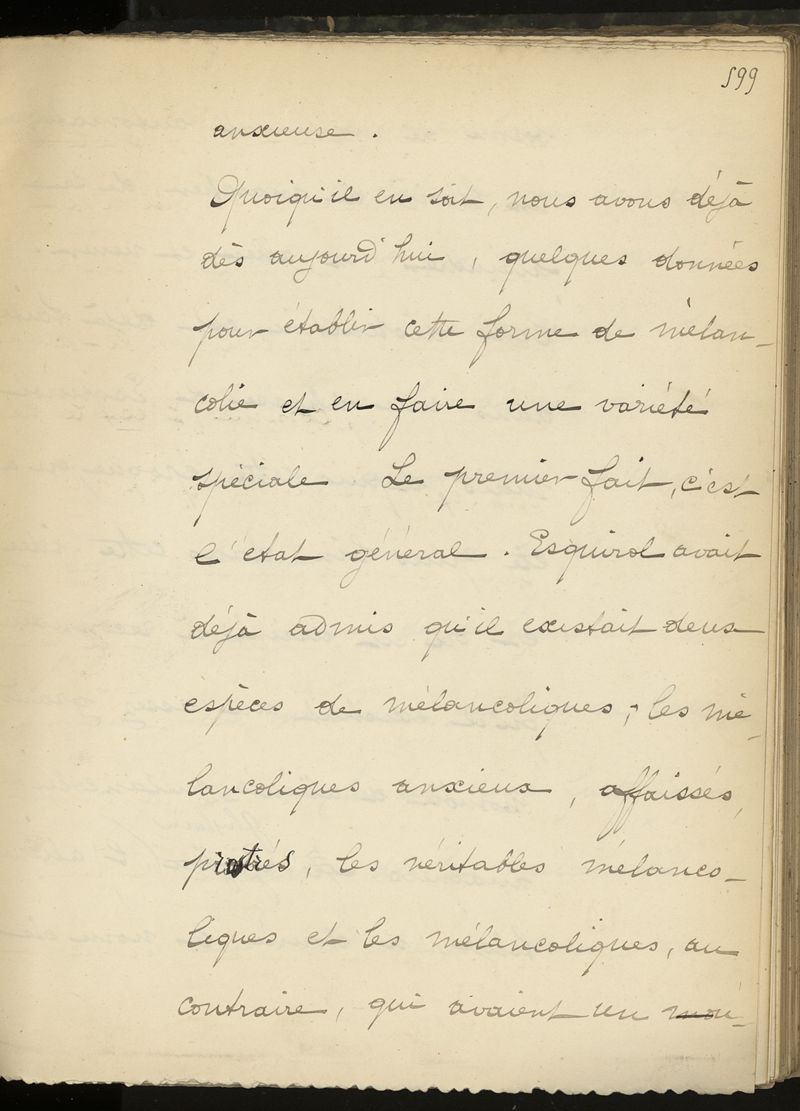 599
anxieuse.
Quoiqu'il en soit, nous avons déjà
dès aujourd'hui, quelques données
pour établir cette forme de mélan-
colie et en faire une variété
spéciale. Le premier fait, c'est
l'état général. Esquirol avait
déjà admis qu'il existait deux
espèces de mélancoliques, les mé-
lancoliques anxieux, affaissés,
prostrés, les véritables mélanco-
liques et les mélancoliques, au
contraire, qui avaient un mou-